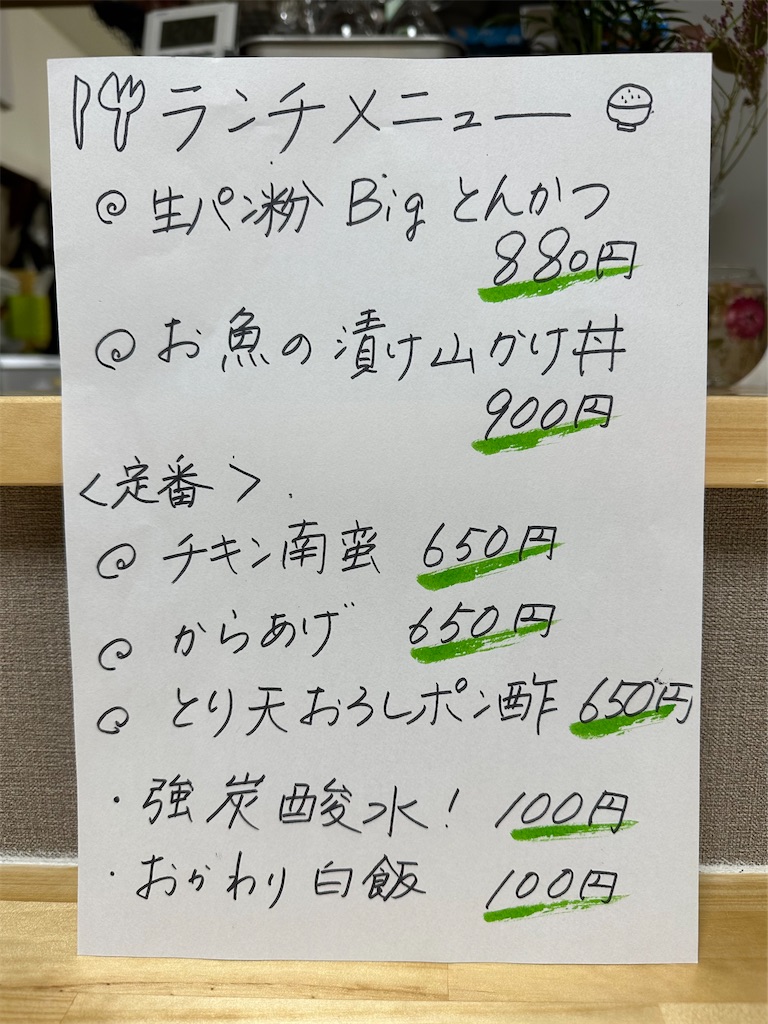 ランチメニュー
生パン粉 Big とんかつ
880円
お魚の漬け山かけ丼
900円
<定番>
チキン南蛮 650円
からあげ 650円
とり天おろしポン酢 650円
・強炭酸水! 100円
・おかわり白飯 100円